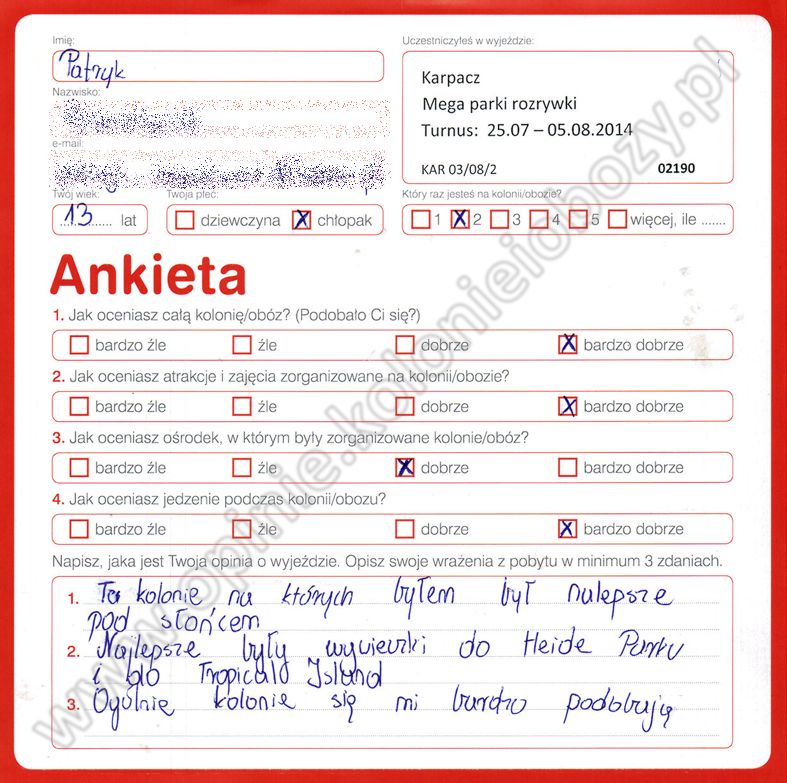 Imię:
Patryk
Nazwisko:
e-mail:
Twój wiek:
13 lat
Twoja płeć:
dziewczyna X chłopak
Uczestniczyłeś w wyjeździe:
Karpacz
Mega parki rozrywki
Turnus: 25.07 – 05.08.2014
KAR 03/08/2 02190
Który raz jesteś na kolonii/obozie?
1 X 2 3 4 5 więcej, ile .......
Ankieta
1. Jak oceniasz całą kolonię/obóz? (Podobało Ci się?)
bardzo źle źle dobrze X bardzo dobrze
2. Jak oceniasz atrakcje i zajęcia zorganizowane na kolonii/obozie?
bardzo źle źle dobrze X bardzo dobrze
3. Jak oceniasz ośrodek, w którym były zorganizowane kolonie/obóz?
bardzo źle źle X dobrze bardzo dobrze
4. Jak oceniasz jedzenie podczas kolonii/obozu?
bardzo źle źle dobrze X bardzo dobrze
Napisz, jaka jest Twoja opinia o wyjeździe. Opisz swoje wrażenia z pobytu w minimum 3 zdaniach.
1. Ta kolonie na których byłem był nalepsze
pod słońcem
2. Najlepsze były wycieczki do Heide Parku
i do Tropicald Island
3. Ogulnie kolonie się mi bardzo podobują
www.opinie.kolonieiobozy.pl